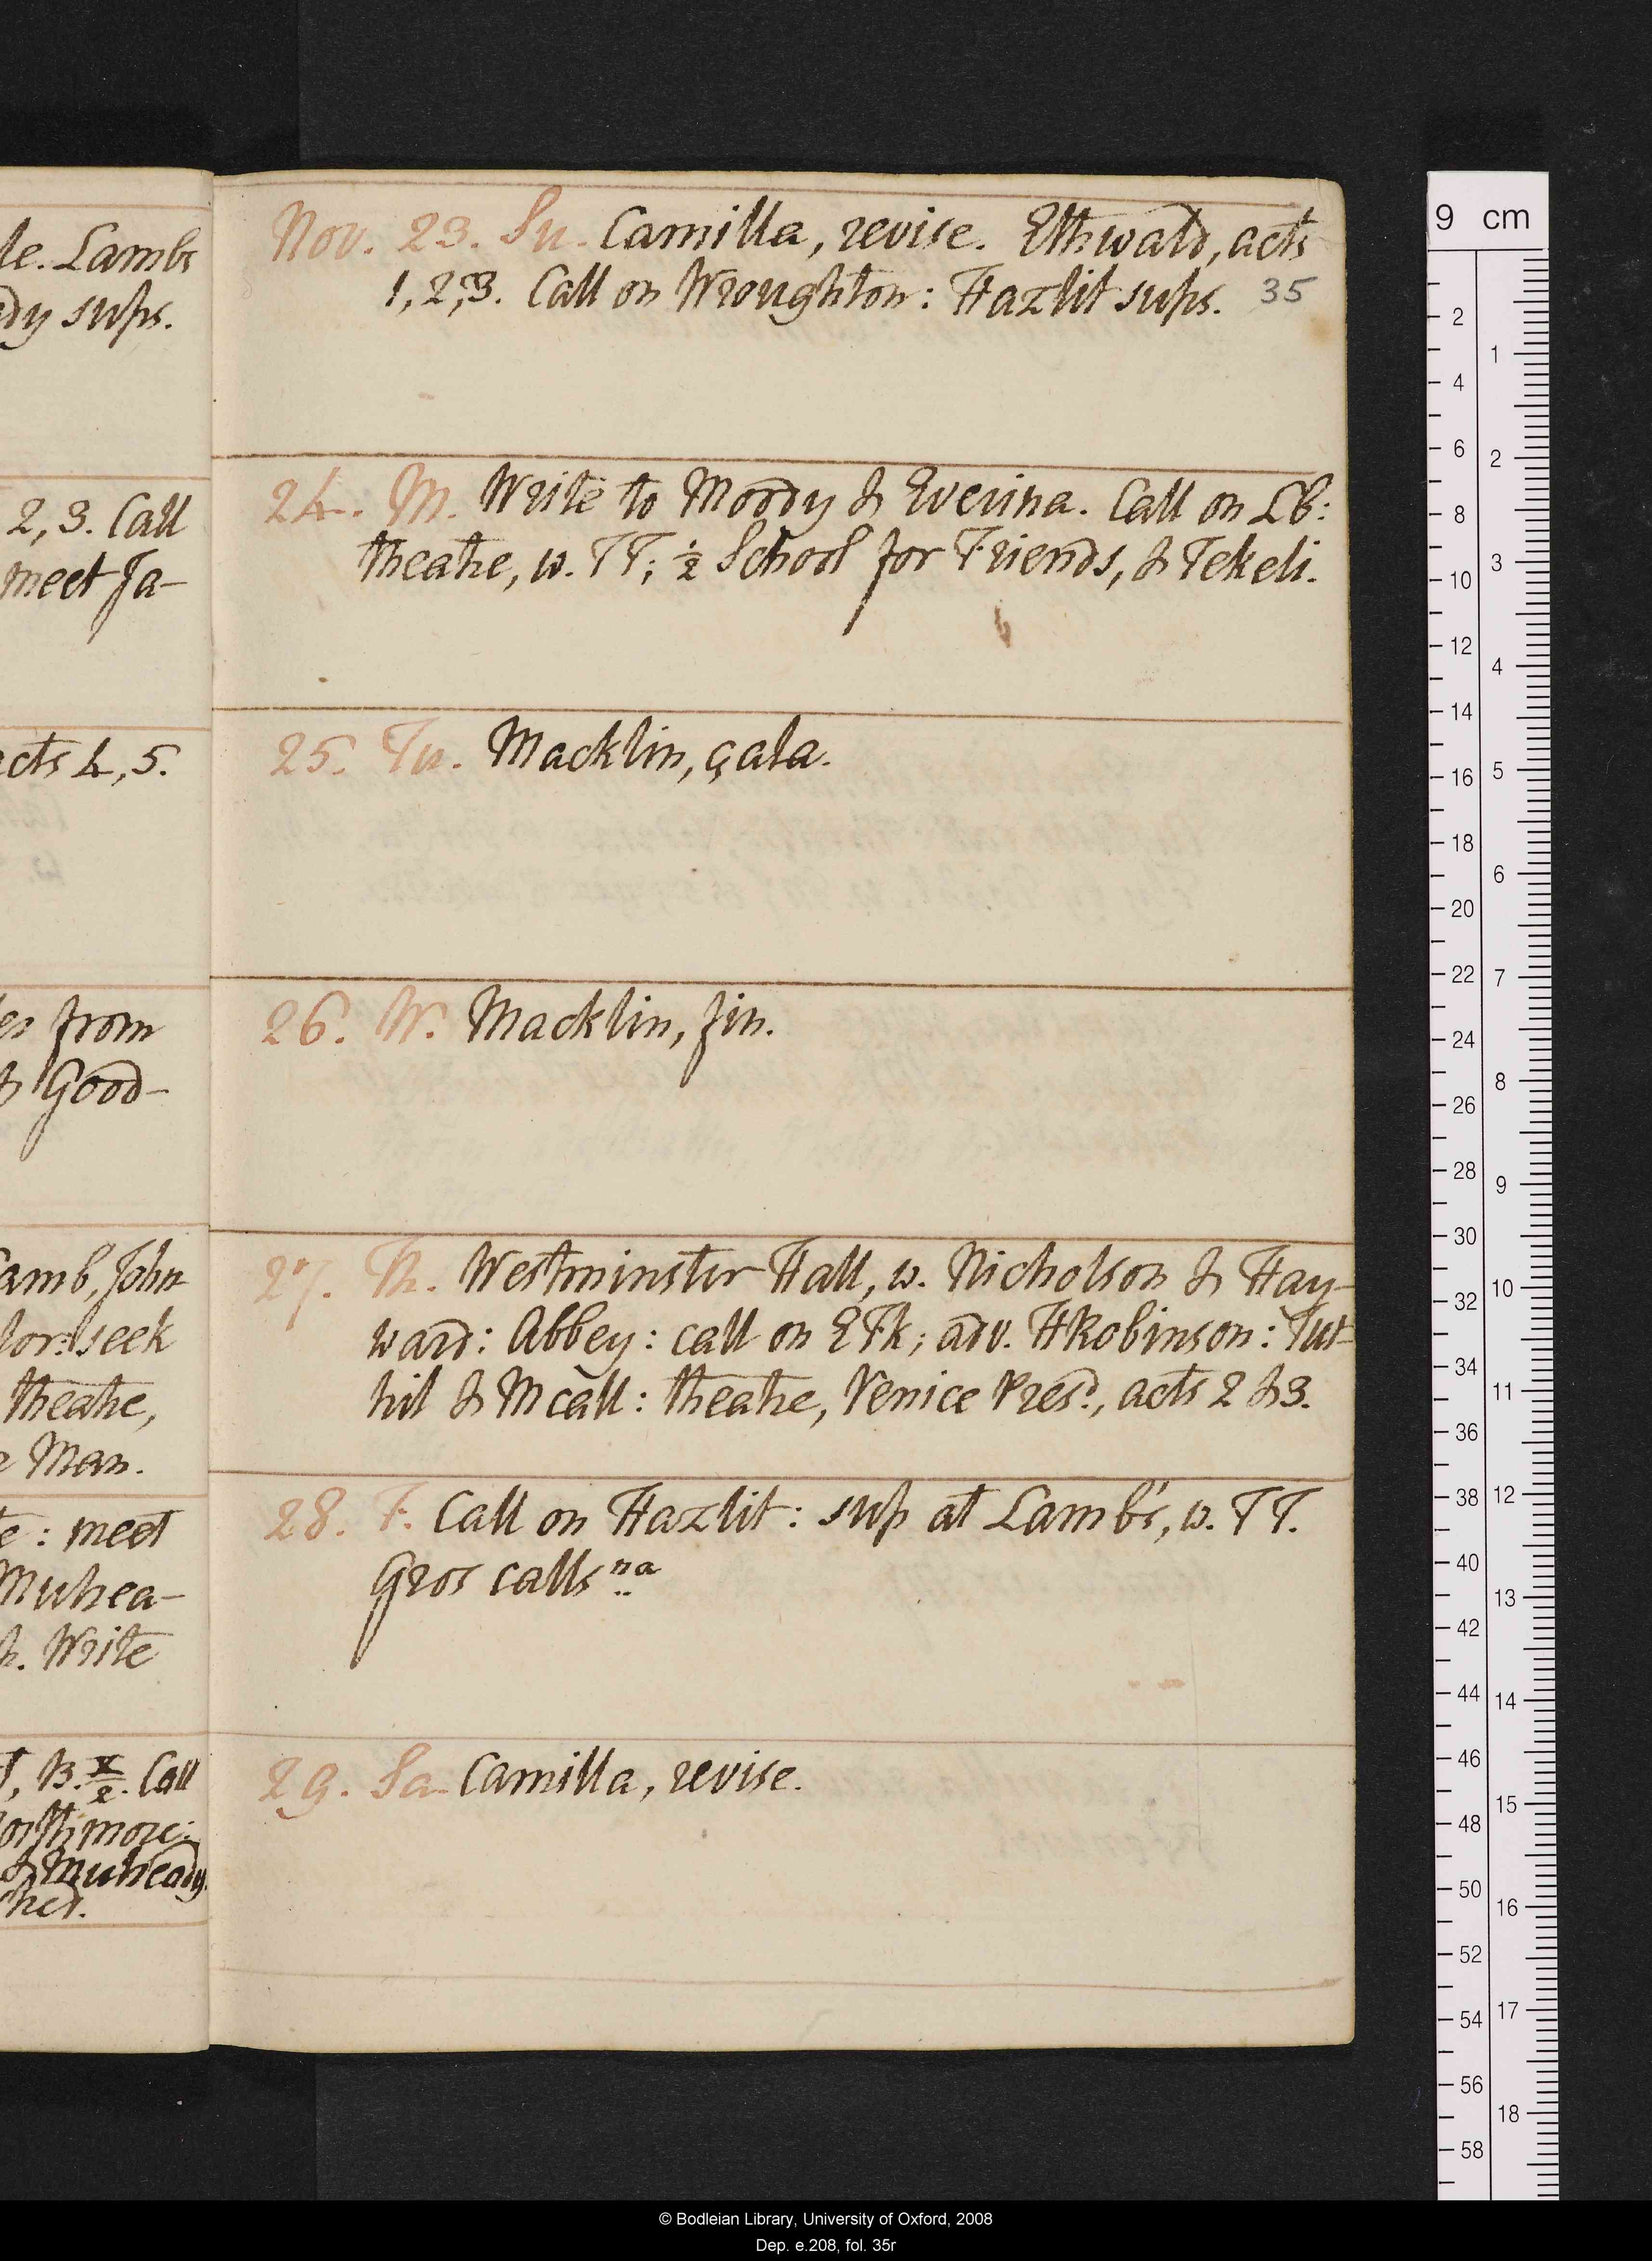 le. Lambs
dy sups.
2, 3. Call
meet Ja-
acts 4, 5.
es from
& Good-
Lamb, John
lor: seek
theatre,
e Man.
te: meet
Mulrea-
h. Write
B. X/2. Call
orthmore:
& Mulready
ched.
Nov. 23. Su. Camilla, revise. Ethwald, acts
1, 2, 3. Call on Wroughton: Hazlit sups. 35
24. M. Write to Moody & Everina. Call on LB:
theatre, w. TT; ½ School for Friends, & Tekeli.
25. Tu. Macklin, çala.
26. W. Macklin, fin.
27. Th. Westminster Hall, w. Nicholson & Hay-
ward: Abbey: call on EFk; adv. HRobinson: Tut-
hil & M call: theatre, Venice Presd., acts 2 & 3.
28. F. Call on Hazlit: sup at Lamb's, w. TT.
Gros calls na
29. Sa. Camilla, revise.
9 cm
2
4
6
8
10
12
14
16
18
20
22
24
26
28
30
32
34
36
38
40
42
44
46
48
50
52
54
56
58
1
2
3
4
5
6
7
8
9
10
11
12
13
14
15
16
17
18
© Bodleian Library, University of Oxford, 2008
Dep. e.208, fol. 35r